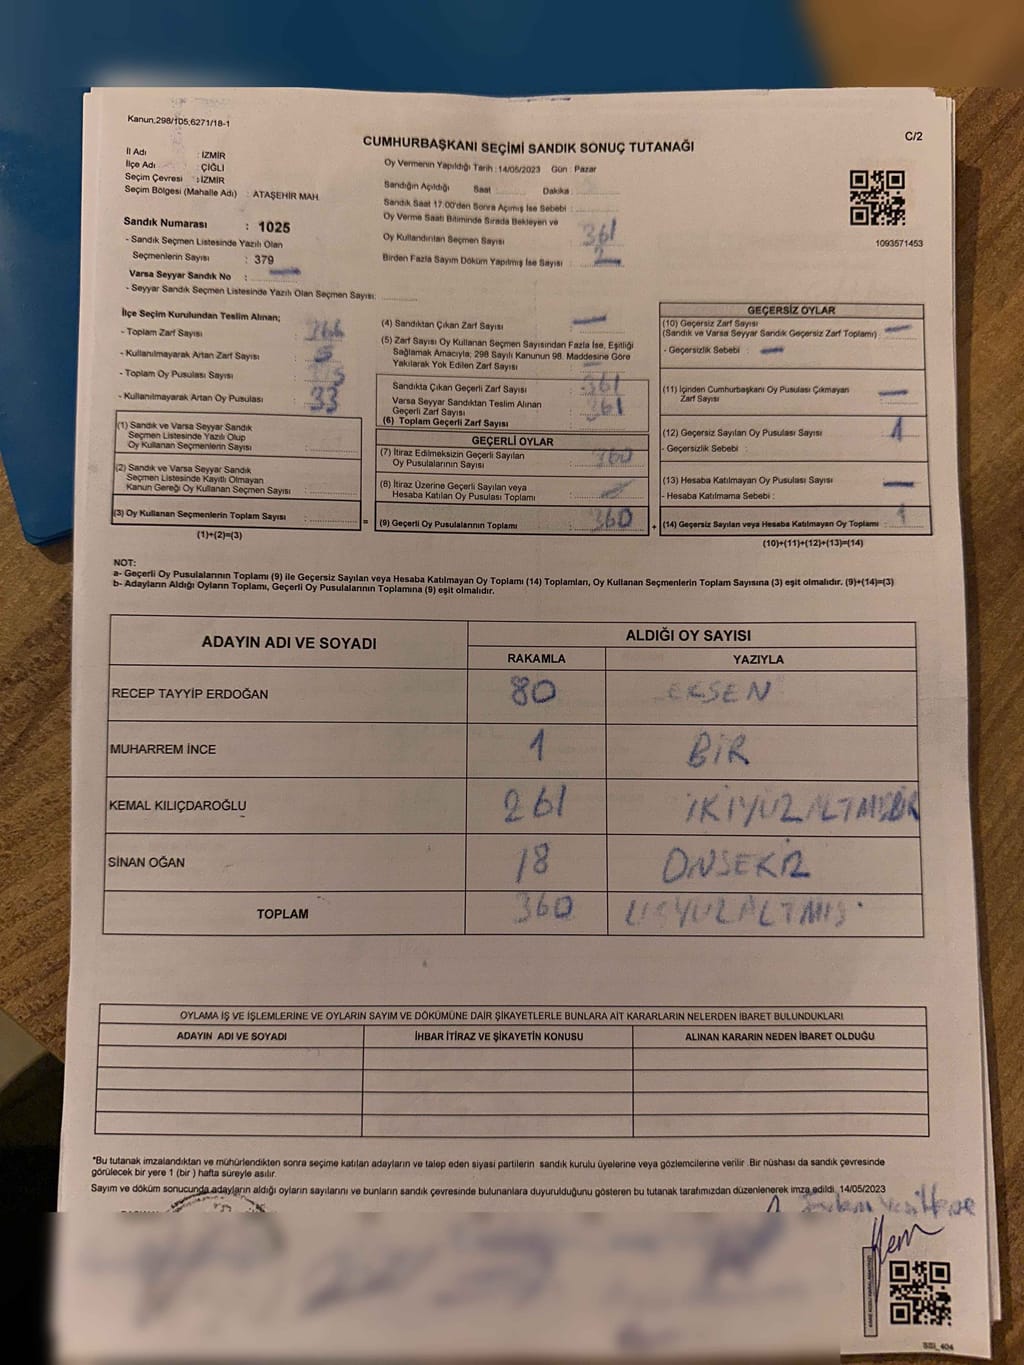 Kanun,298/105,6271/18-1
C/2
CUMHURBAŞKANI SEÇİMİ SANDIK SONUÇ TUTANAĞI
İl Adı : İZMİR
İlçe Adı : ÇİĞLİ
Seçim Çevresi : İZMİR
Seçim Bölgesi (Mahalle Adı) : ATAŞEHİR MAH.
Sandık Numarası : 1025
- Sandık Seçmen Listesinde Yazılı Olan
Seçmenlerin Sayısı : 379
Varsa Seyyar Sandık No :
- Seyyar Sandık Seçmen Listesinde Yazılı Olan Seçmen Sayısı:
Oy Vermenin Yapıldığı Tarih : 14/05/2023 Gün : Pazar
Sandığın Açıldığı Saat Dakika :
Sandık Saat 17:00'den Sonra Açımış İse Sebebi :
Oy Verme Saati Bitiminde Sırada Bekleyen ve
Oy Kullandırılan Seçmen Sayısı : 361
Birden Fazla Sayım Döküm Yapılmış İse Sayısı : 2
1093571453
İlçe Seçim Kurulundan Teslim Alınan;
- Toplam Zarf Sayısı :
- Kullanılmayarak Artan Zarf Sayısı : 5
- Toplam Oy Pusulası Sayısı :
- Kullanılmayarak Artan Oy Pusulası : 33
(1) Sandık ve Varsa Seyyar Sandık
Seçmen Listesinde Yazılı Olup
Oy Kullanan Seçmenlerin Sayısı :
(2) Sandık ve Varsa Seyyar Sandık
Seçmen Listesinde Kayıtlı Olmayan
Kanun Gereği Oy Kullanan Seçmen Sayısı :
(3) Oy Kullanan Seçmenlerin Toplam Sayısı :
(1)+(2)=(3)
=
(4) Sandıktan Çıkan Zarf Sayısı :
(5) Zarf Sayısı Oy Kullanan Seçmen Sayısından Fazla İse, Eşitliği
Sağlamak Amacıyla; 298 Sayılı Kanunun 98. Maddesine Göre
Yakılarak Yok Edilen Zarf Sayısı :
Sandıkta Çıkan Geçerli Zarf Sayısı : 361
Varsa Seyyar Sandıktan Teslim Alınan
Geçerli Zarf Sayısı : 361
(6) Toplam Geçerli Zarf Sayısı :
GEÇERLİ OYLAR
(7) İtiraz Edilmeksizin Geçerli Sayılan
Oy Pusulalarının Sayısı : 360
(8) İtiraz Üzerine Geçerli Sayılan veya
Hesaba Katılan Oy Pusulası Toplamı :
(9) Geçerli Oy Pusulalarının Toplamı : 360
+
GEÇERSİZ OYLAR
(10) Geçersiz Zarf Sayısı
(Sandık ve Varsa Seyyar Sandık Geçersiz Zarf Toplamı) :
- Geçersizlik Sebebi :
(11) İçinden Cumhurbaşkanı Oy Pusulası Çıkmayan
Zarf Sayısı :
(12) Geçersiz Sayılan Oy Pusulası Sayısı : 1
- Geçersizlik Sebebi :
(13) Hesaba Katılmayan Oy Pusulası Sayısı :
- Hesaba Katılmama Sebebi :
(14) Geçersiz Sayılan veya Hesaba Katılmayan Oy Toplamı : 1
(10)+(11)+(12)+(13)=(14)
NOT:
a- Geçerli Oy Pusulalarının Toplamı (9) ile Geçersiz Sayılan veya Hesaba Katılmayan Oy Toplamı (14) Toplamları, Oy Kullanan Seçmenlerin Toplam Sayısına (3) eşit olmalıdır. (9)+(14)=(3)
b- Adayların Aldığı Oyların Toplamı, Geçerli Oy Pusulalarının Toplamına (9) eşit olmalıdır.
ADAYIN ADI VE SOYADI ALDIĞI OY SAYISI
RAKAMLA YAZIYLA
RECEP TAYYİP ERDOĞAN 80 SEKSEN
MUHARREM İNCE 1 BİR
KEMAL KILIÇDAROĞLU 261 İKİYÜZALTMIŞBİR
SİNAN OĞAN 18 ONSEKİZ
TOPLAM 360 ÜÇYÜZALTMIŞ
OYLAMA İŞ VE İŞLEMLERİNE VE OYLARIN SAYIM VE DÖKÜMÜNE DAİR ŞİKAYETLERLE BUNLARA AİT KARARLARIN NELERDEN İBARET BULUNDUKLARI
ADAYIN ADI VE SOYADI İHBAR İTİRAZ VE ŞİKAYETİN KONUSU ALINAN KARARIN NEDEN İBARET OLDUĞU
*Bu tutanak imzalandıktan ve mühürlendikten sonra seçime katılan adayların ve talep eden siyasi partilerin sandık kurulu üyelerine veya gözlemcilerine verilir .Bir nüshası da sandık çevresinde
görülecek bir yere 1 (bir ) hafta süreyle asılır.
Sayım ve döküm sonucunda adayların aldığı oyların sayılarını ve bunların sandık çevresinde bulunanlara duyurulduğunu gösteren bu tutanak tarafımızdan düzenlenerek imza edildi. 14/05/2023
SSI_404